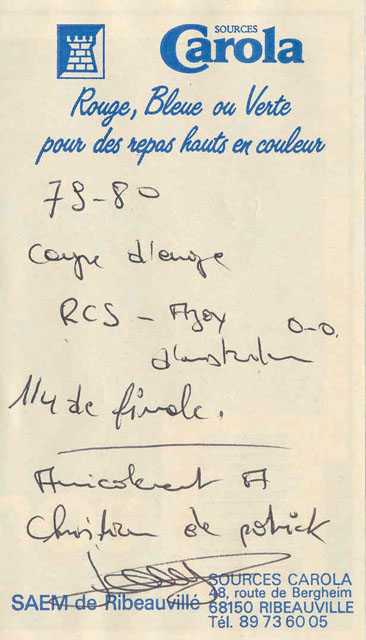 SOURCES
Carola
Rouge, Bleue ou Verte
pour des repas hauts en couleur
79-80
Coupe d'europe
RCS - Ajax 0-0.
d'amsterdam
1/4 de finale.
Amicalement A
Christian de patrick
SOURCES CAROLA
48, route de Bergheim
SAEM de Ribeauvillé 68150 RIBEAUVILLE
Tél. 89 73 60 05